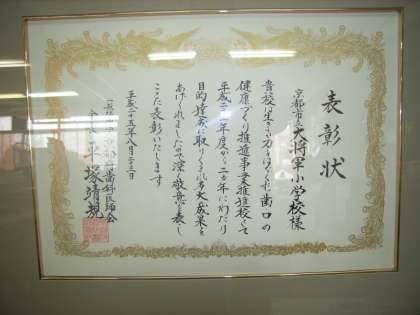 表彰状
京都市立大将軍小学校様
貴校は生きる力をはぐくむ歯・口の
健康づくり推進事業推進校として
平成二十 年度から二か年にわたり
目的達成に取りくまれ多大な成果を
あげられましたので深く敬意を表し
ここに表彰いたします
平成二十五年八月二十二日
京都 歯科医師会
会長 平塚靖規